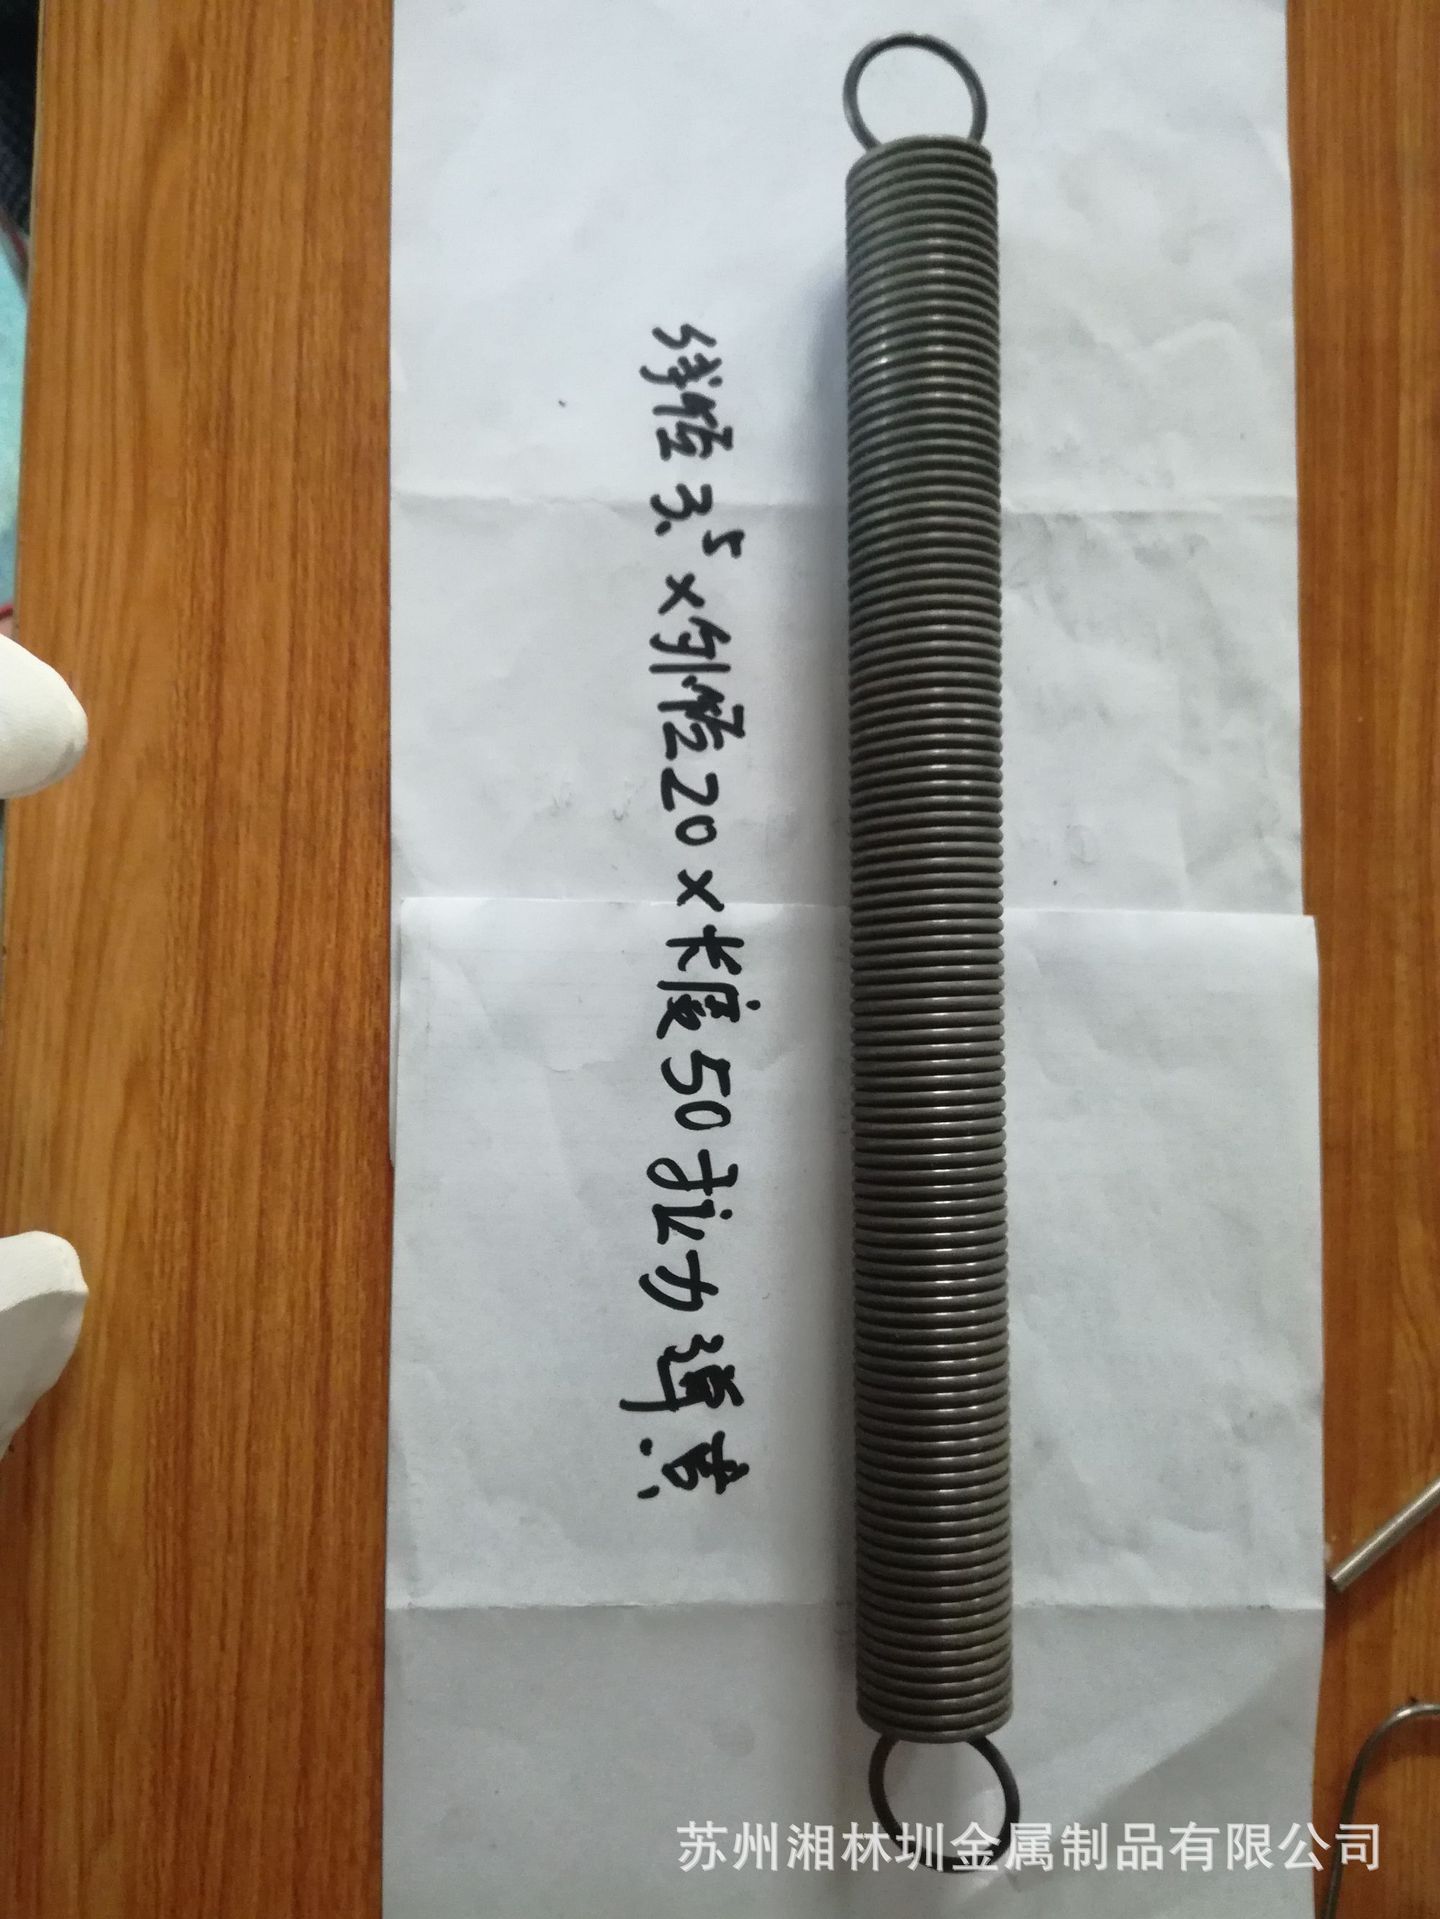 线径3.5x外径20x长度50拉力弹簧
苏州湘林圳金属制品有限公司